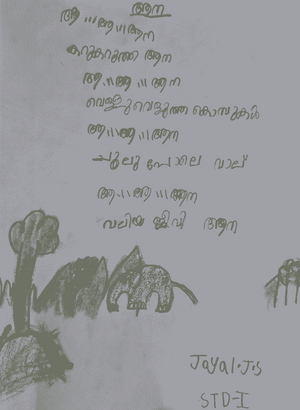 ആന
ആ...ആ...ആന
കറുകറുത്ത ആന
ആ...ആ...ആന
വെളുവെളുത്ത കൊമ്പുകൾ
ആ...ആ...ആന
പോലെ വാല്
ആ...ആ...ആന
വലിയ ജീവി ആന
Jayal.J.S
STD-I